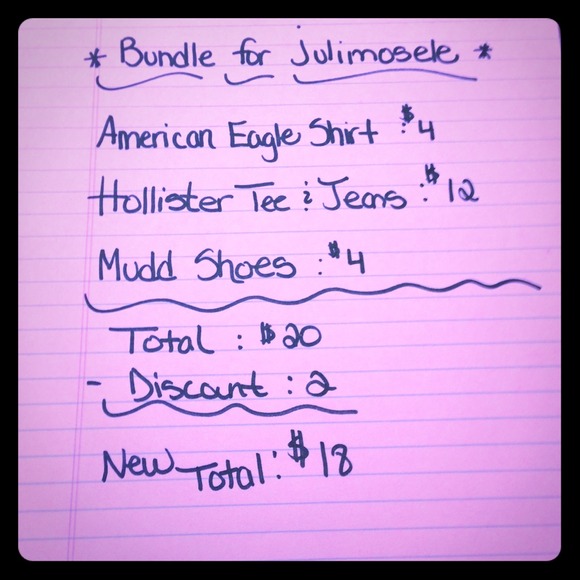 * Bundle for Julimosele *
American Eagle Shirt : $4
Hollister Tee & Jeans : $12
Mudd Shoes : $4
Total : $20
- Discount : 2
New Total : $18